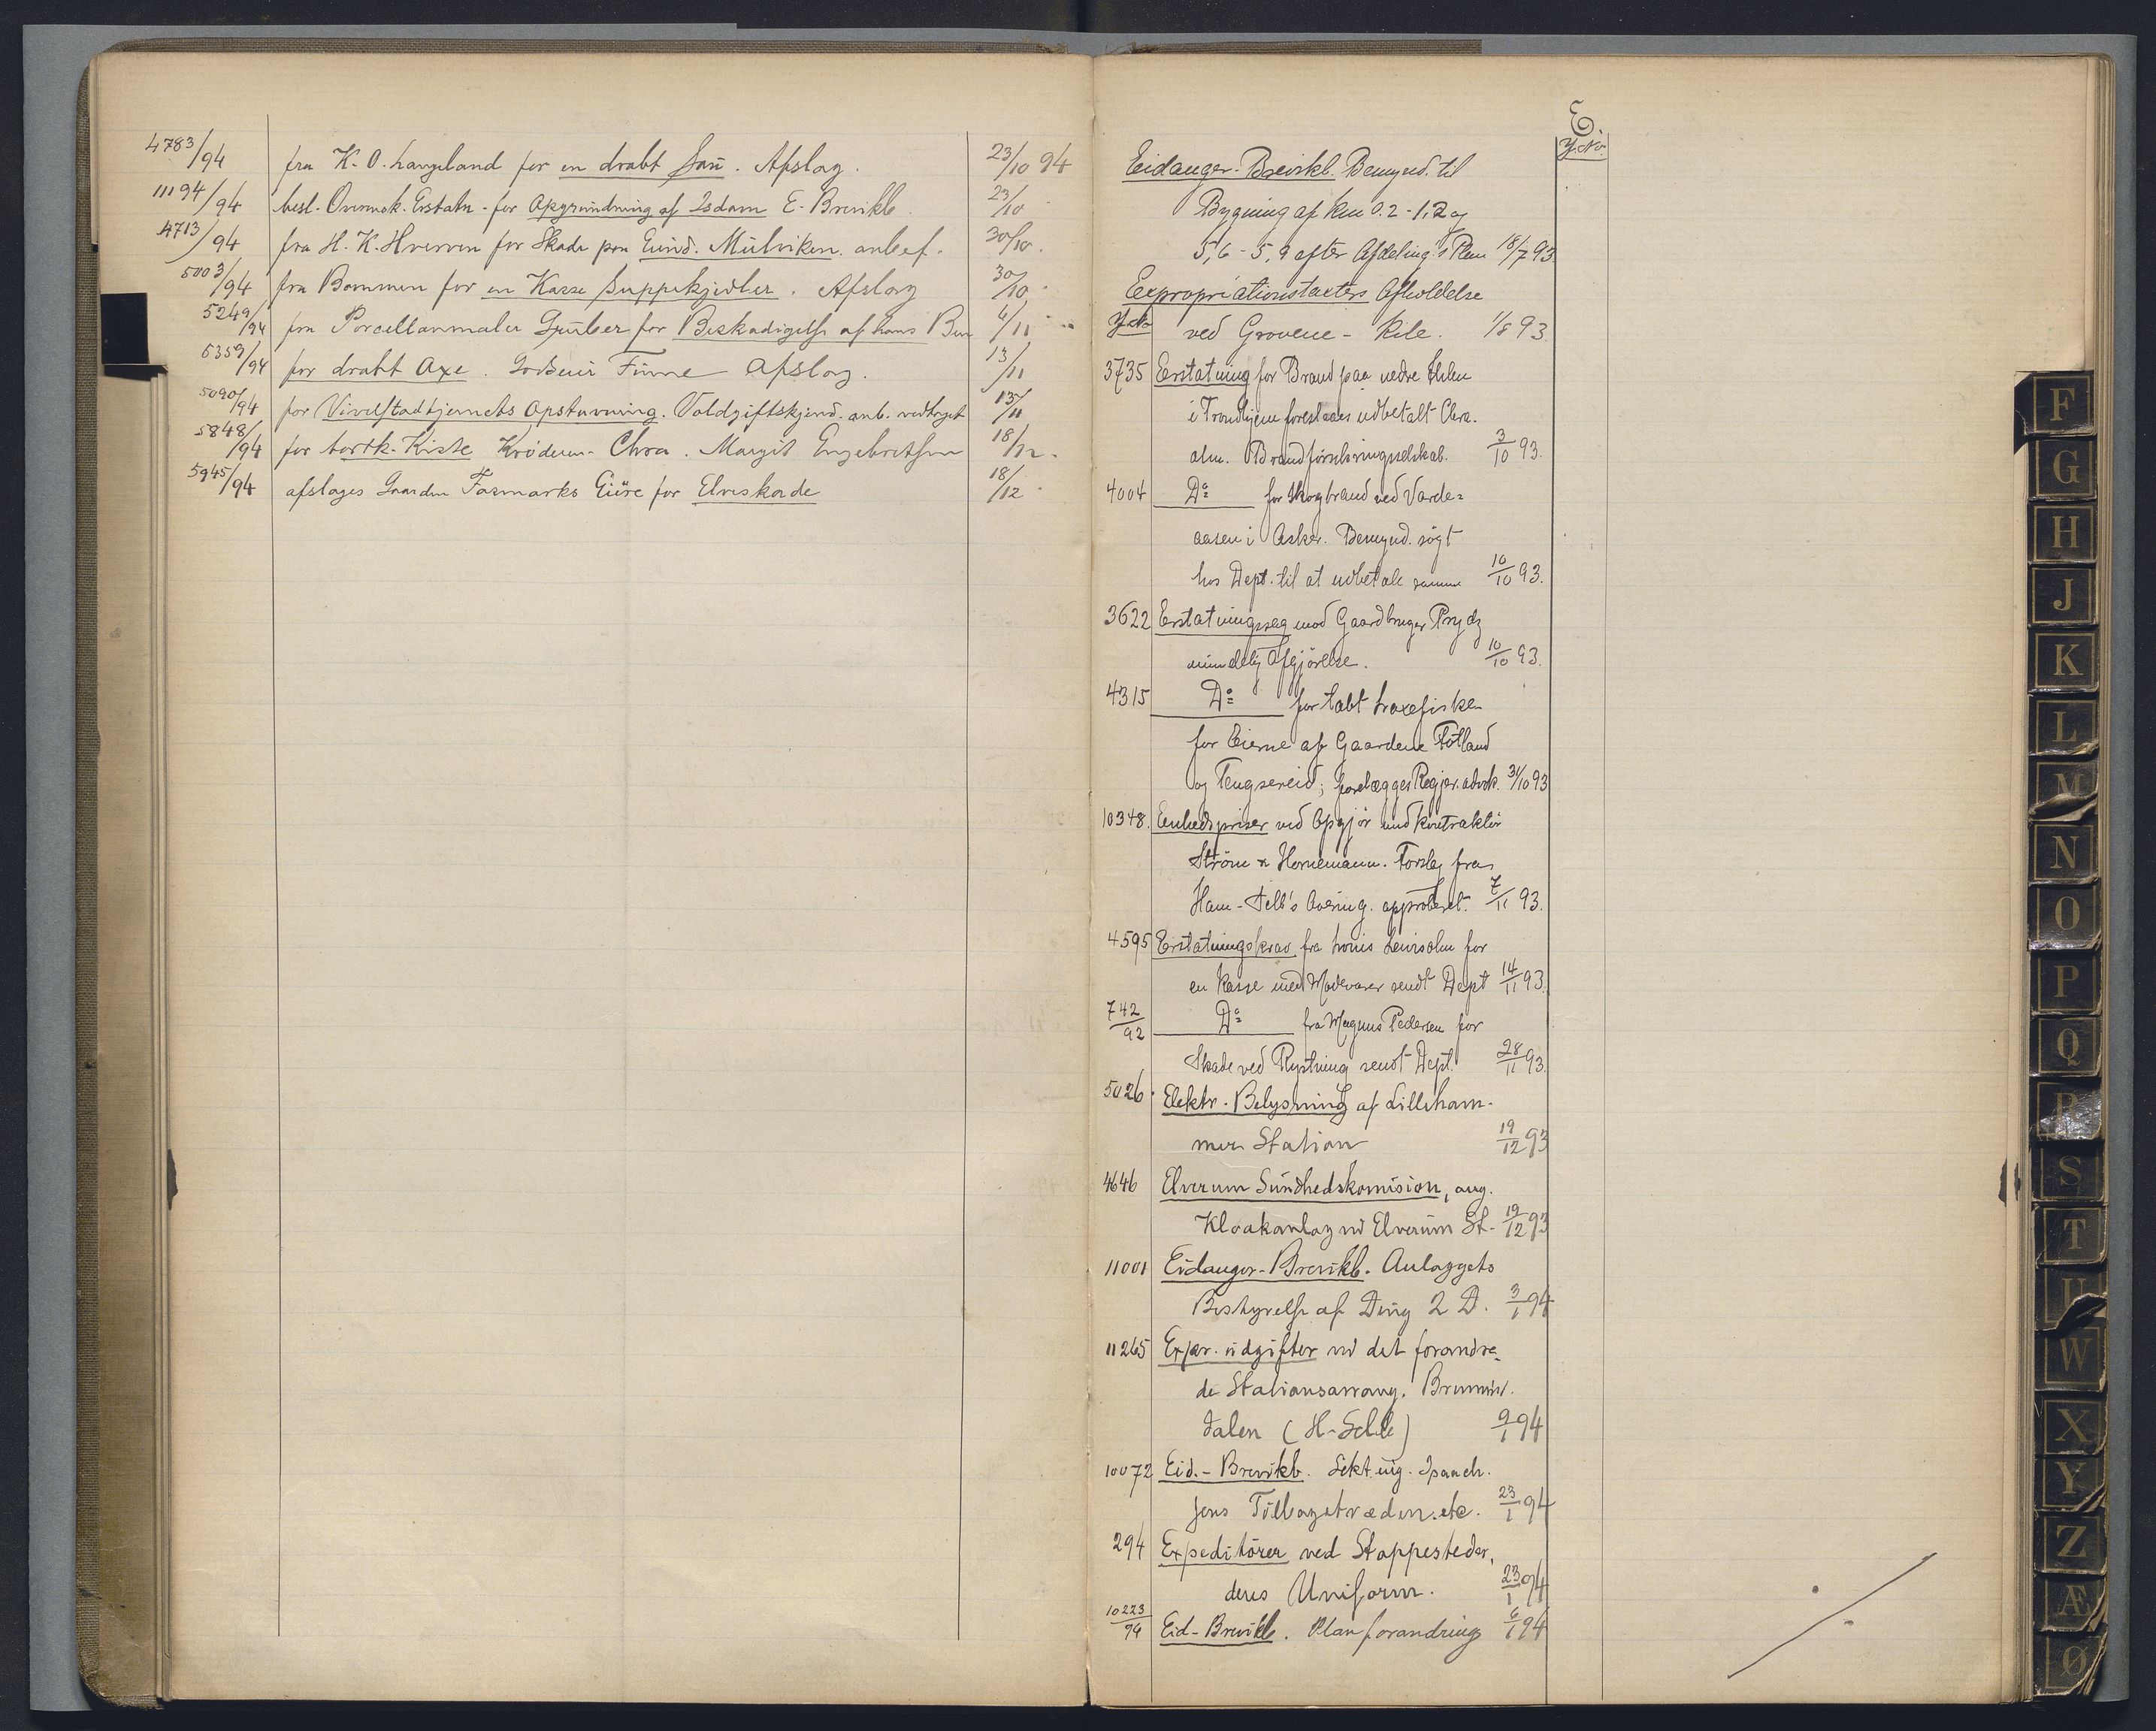 4783/94 fra K. O. Langeland for en dræbt Sau. Afslag. 23/10 94
11194/94 besl. Overensk. Erstatn. for Opgrundning af Isdam E-Brevikb 23/10
4713/94 fra H. K. Hverven for Skade paa Eiend. Mulviken. anbef. 30/10.
5003/94 fra Bommen for en Kasse Suppekjedler. Afslag 30/10.
5249/94 fra Porcellanmaler Gruber for Beskadigelse af hans Ben 6/11
5359/94 for dræbt Oxe. Finne Afslag. 13/11
5090/94 for Vivelstadtjernets Opstuvning. Voldgiftskjend. anb. vedtaget 13/11
5848/94 for bortk. Kiste Krøderen-Chra. Margit Engebretsen 18/12.
5945/94 afslages Gaarden Eiere for Elveskade 18/12
E.
J.No.
Eidanger-Brevikb. Bemynd. til
Bygning af km 0.2-1,2 og
5,6-5,9 efter Afdeling.s Plan 18/7 93
Expropriationstaxters Afholdelse
J.No ved Grovene-Kile. 1/8 93.
3735 Erstatning for Brand paa nedre Ihlen
i Trondhjem foreslaaes udbetalt Chra.
alm. Brandforsikringsselskab. 3/10 93.
4004 Do for Skogbrand ved Varde=
aasen i Asker. Bemynd. søgt
hos Dept. til at udbetale samme 10/10 93.
3622 Erstatningssag mod Gaardbruger Prydz
mindelig Afgjørelse. 10/10 93.
4315 Do for tabt Laxefiske
for Eierne af Gaardene Fotland
og Tengsereid; forelægges Regjer. advok. 31/10 93
10348. Enhedspriser ved Opgjør med Kontraktør
Strøm & Hornemann. Forslag fra
Ham-Selb's Overing. approberet. 7/11 93.
4595 Erstatningskrav fra Louis Lewisohn for
en Kasse med Modevarer sendt Dept 14/11 93.
742/92 Do fra Magnus Pedersen for
Skade ved Rystning sendt Dept. 28/11 93.
5026 Elektr. Belysning af Lilleham-
mer Station 19/12 93
4646 Elverum Sundhedskomision, ang.
Kloakanlæg ved Elverum St. 19/12 93
11001 Eidanger-Brevikb. Anlæggets
Bestyrelse af Ding 2 D. 3/1 94
11265 Expr. udgifter ved det forandre-
de Stationsarrang. Brumund.
dalen (H-Selb) 9/1 94
10072 Eid.-Brevikb. Sekt. ing. Isaach.
sens Tilbagetræden. etc. 23/1 94
294 Expeditører ved Stoppesteder,
deres Uniform. 23/1 94
10223/94 Eid-Brevikb. Planforandring 6/1 94
F
G
H
J
K
L
M
N
O
P
Q
R
S
T
U
W
X
Y
Z
Æ
Ø